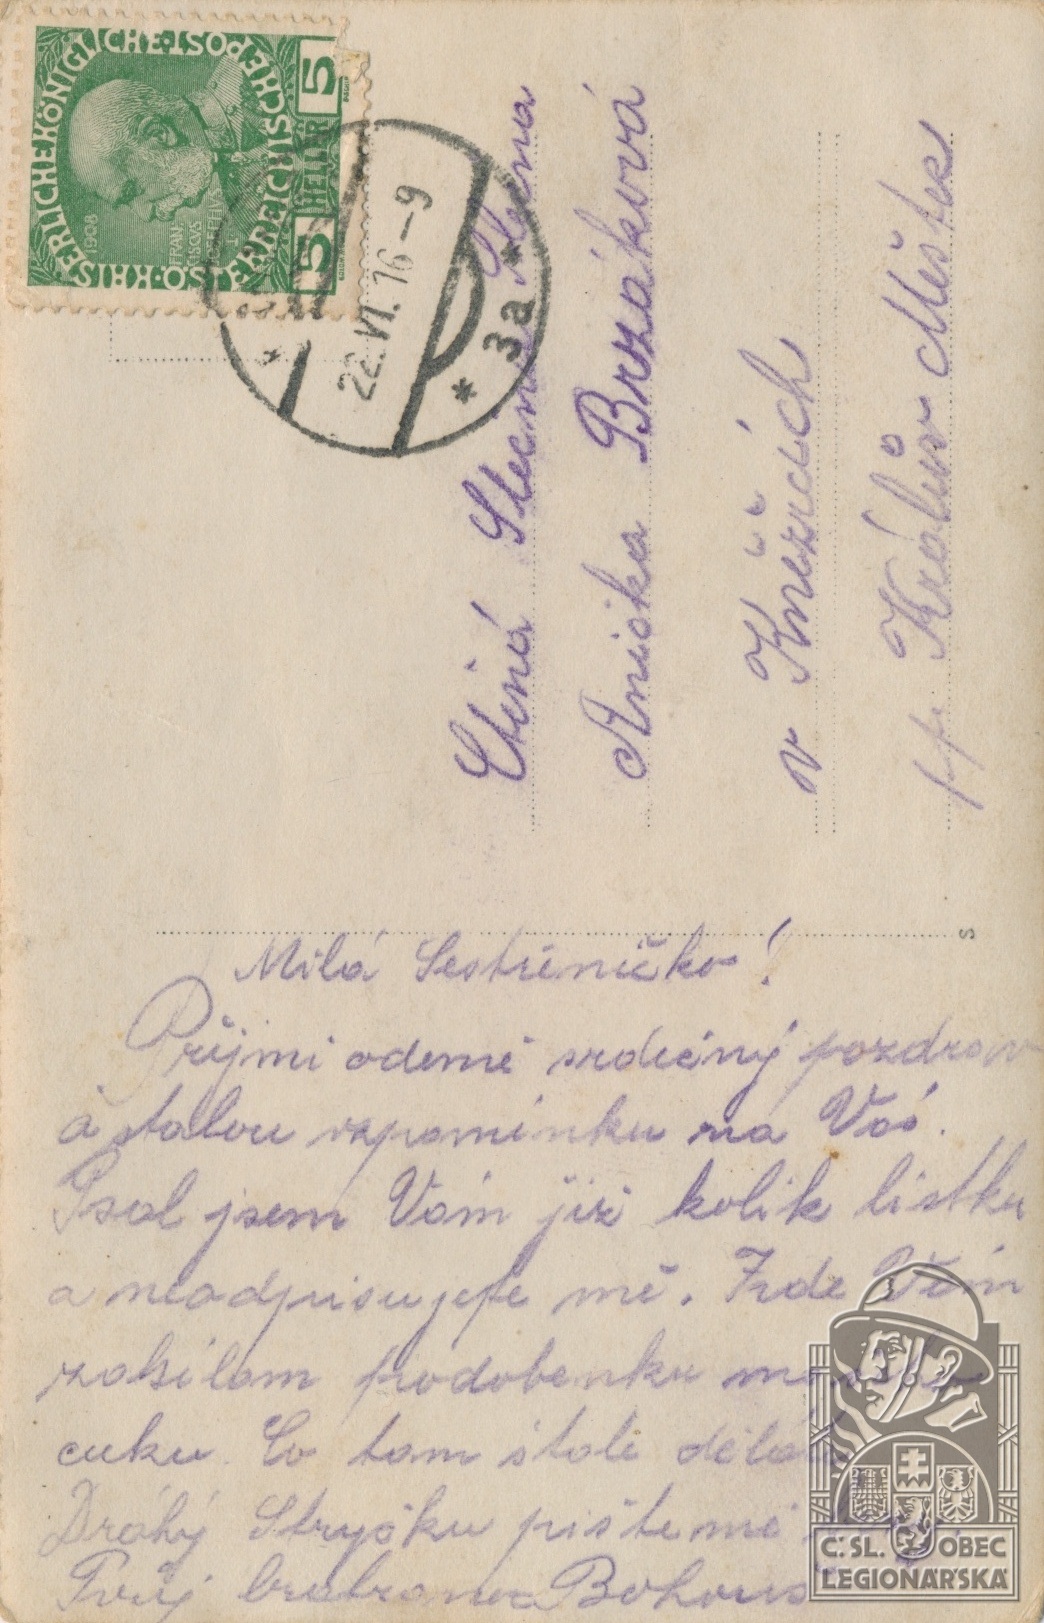 KAISERLICHE KÖNIGLICHE ÖSTERREICHISCHE POST
5 HELLER 5
1908
FRAN
CISCVS
IOSEPHVS I
22.VI.16-9
* 3a *
Ctěná Slečna Slečna
Anička Brzáková
v Kněžicích
pp. Králův Městec
S
Milá Sestřeničko!
Přijmi odemě srdečný pozdrav
a stalou vzpomínku na Vás.
Psal jsem Vám již kolik lístku
a neodpisujete mě. Zde Vám
zasílam podobenku
cuku. Co tam stale děláte
Drahý Strýčku pište mě
Tvůj bratranec Bohouš
Č. SL. OBEC
LEGIONÁŘSKÁ